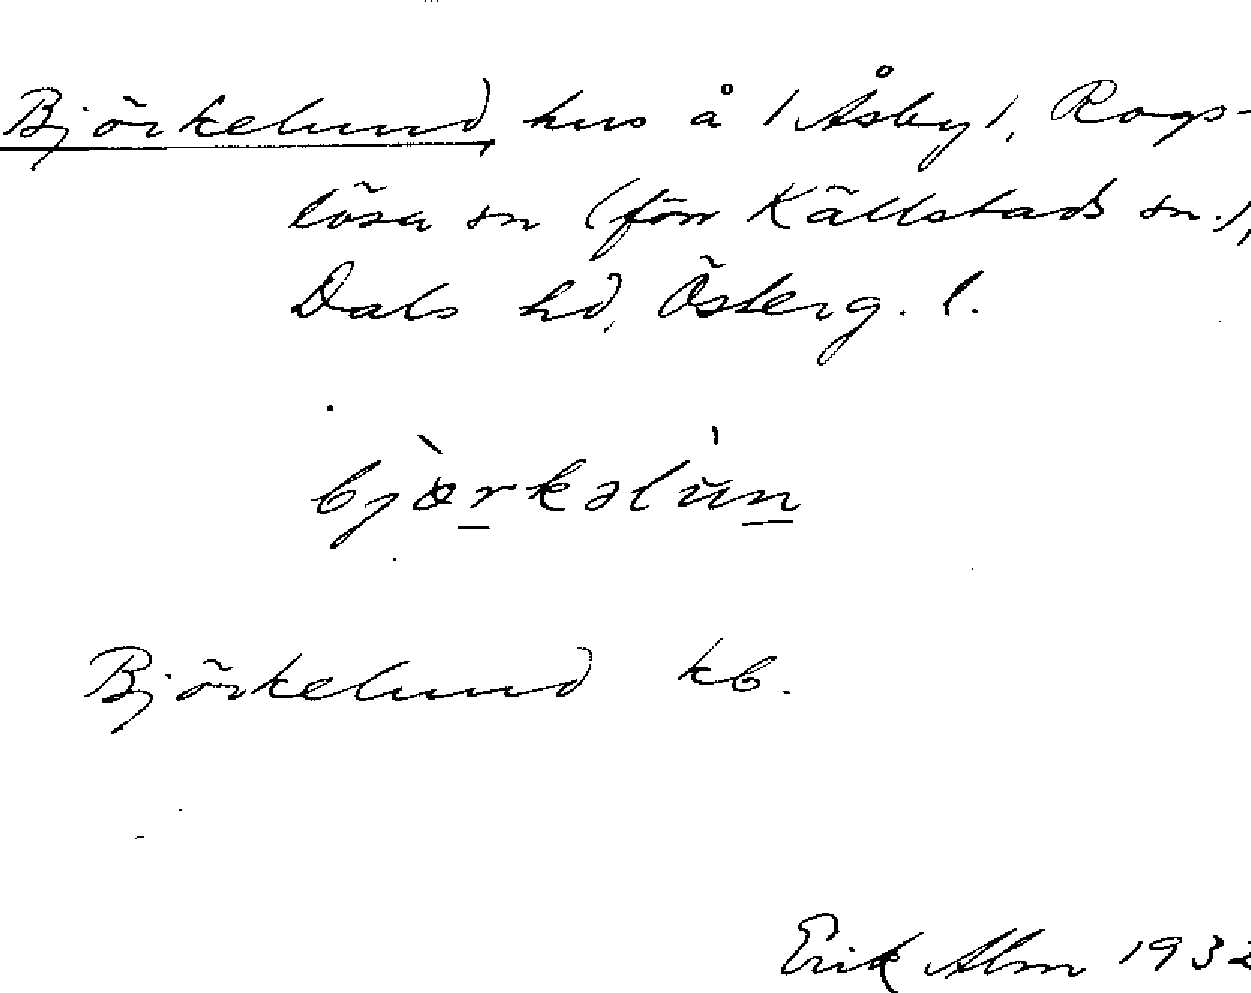 Björkelund, hus å /Åsby/, Rogs-
lösa sn (förr Källstads sn.),
Dals hd, Österg. l.
bjæ̀rkəlún
Björkelund kb.
Erik Alm 1932